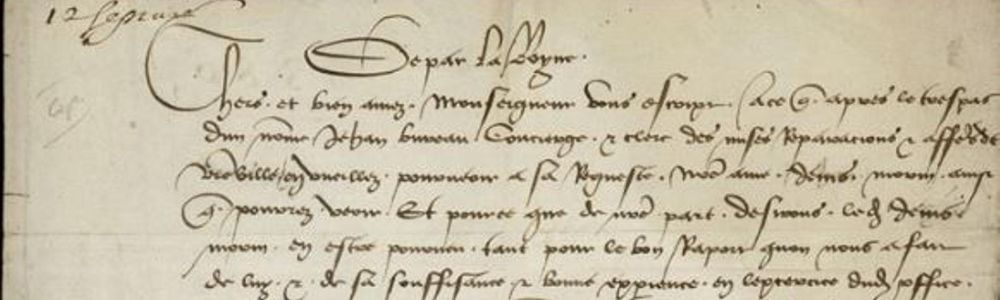 12 septembre
De par la Royne
Chers et bien amez Monseigneur vous escript (ace q̃ apres le trespas
dun nõme Jehan bureau Concierge & clerc des mises Reparacions & affẽs de
vr̃e ville / en vueillez pourveoir a sa Requeste nr̃e ame denis morin ainsi
q̃ pourrez veoir Et pource que de nr̃e part desirons led denis
morin en estre pourveu tant pour le bon Rapport quon nous a fait
de luy & de sa souffisance & bonne experience en lexercice dud office